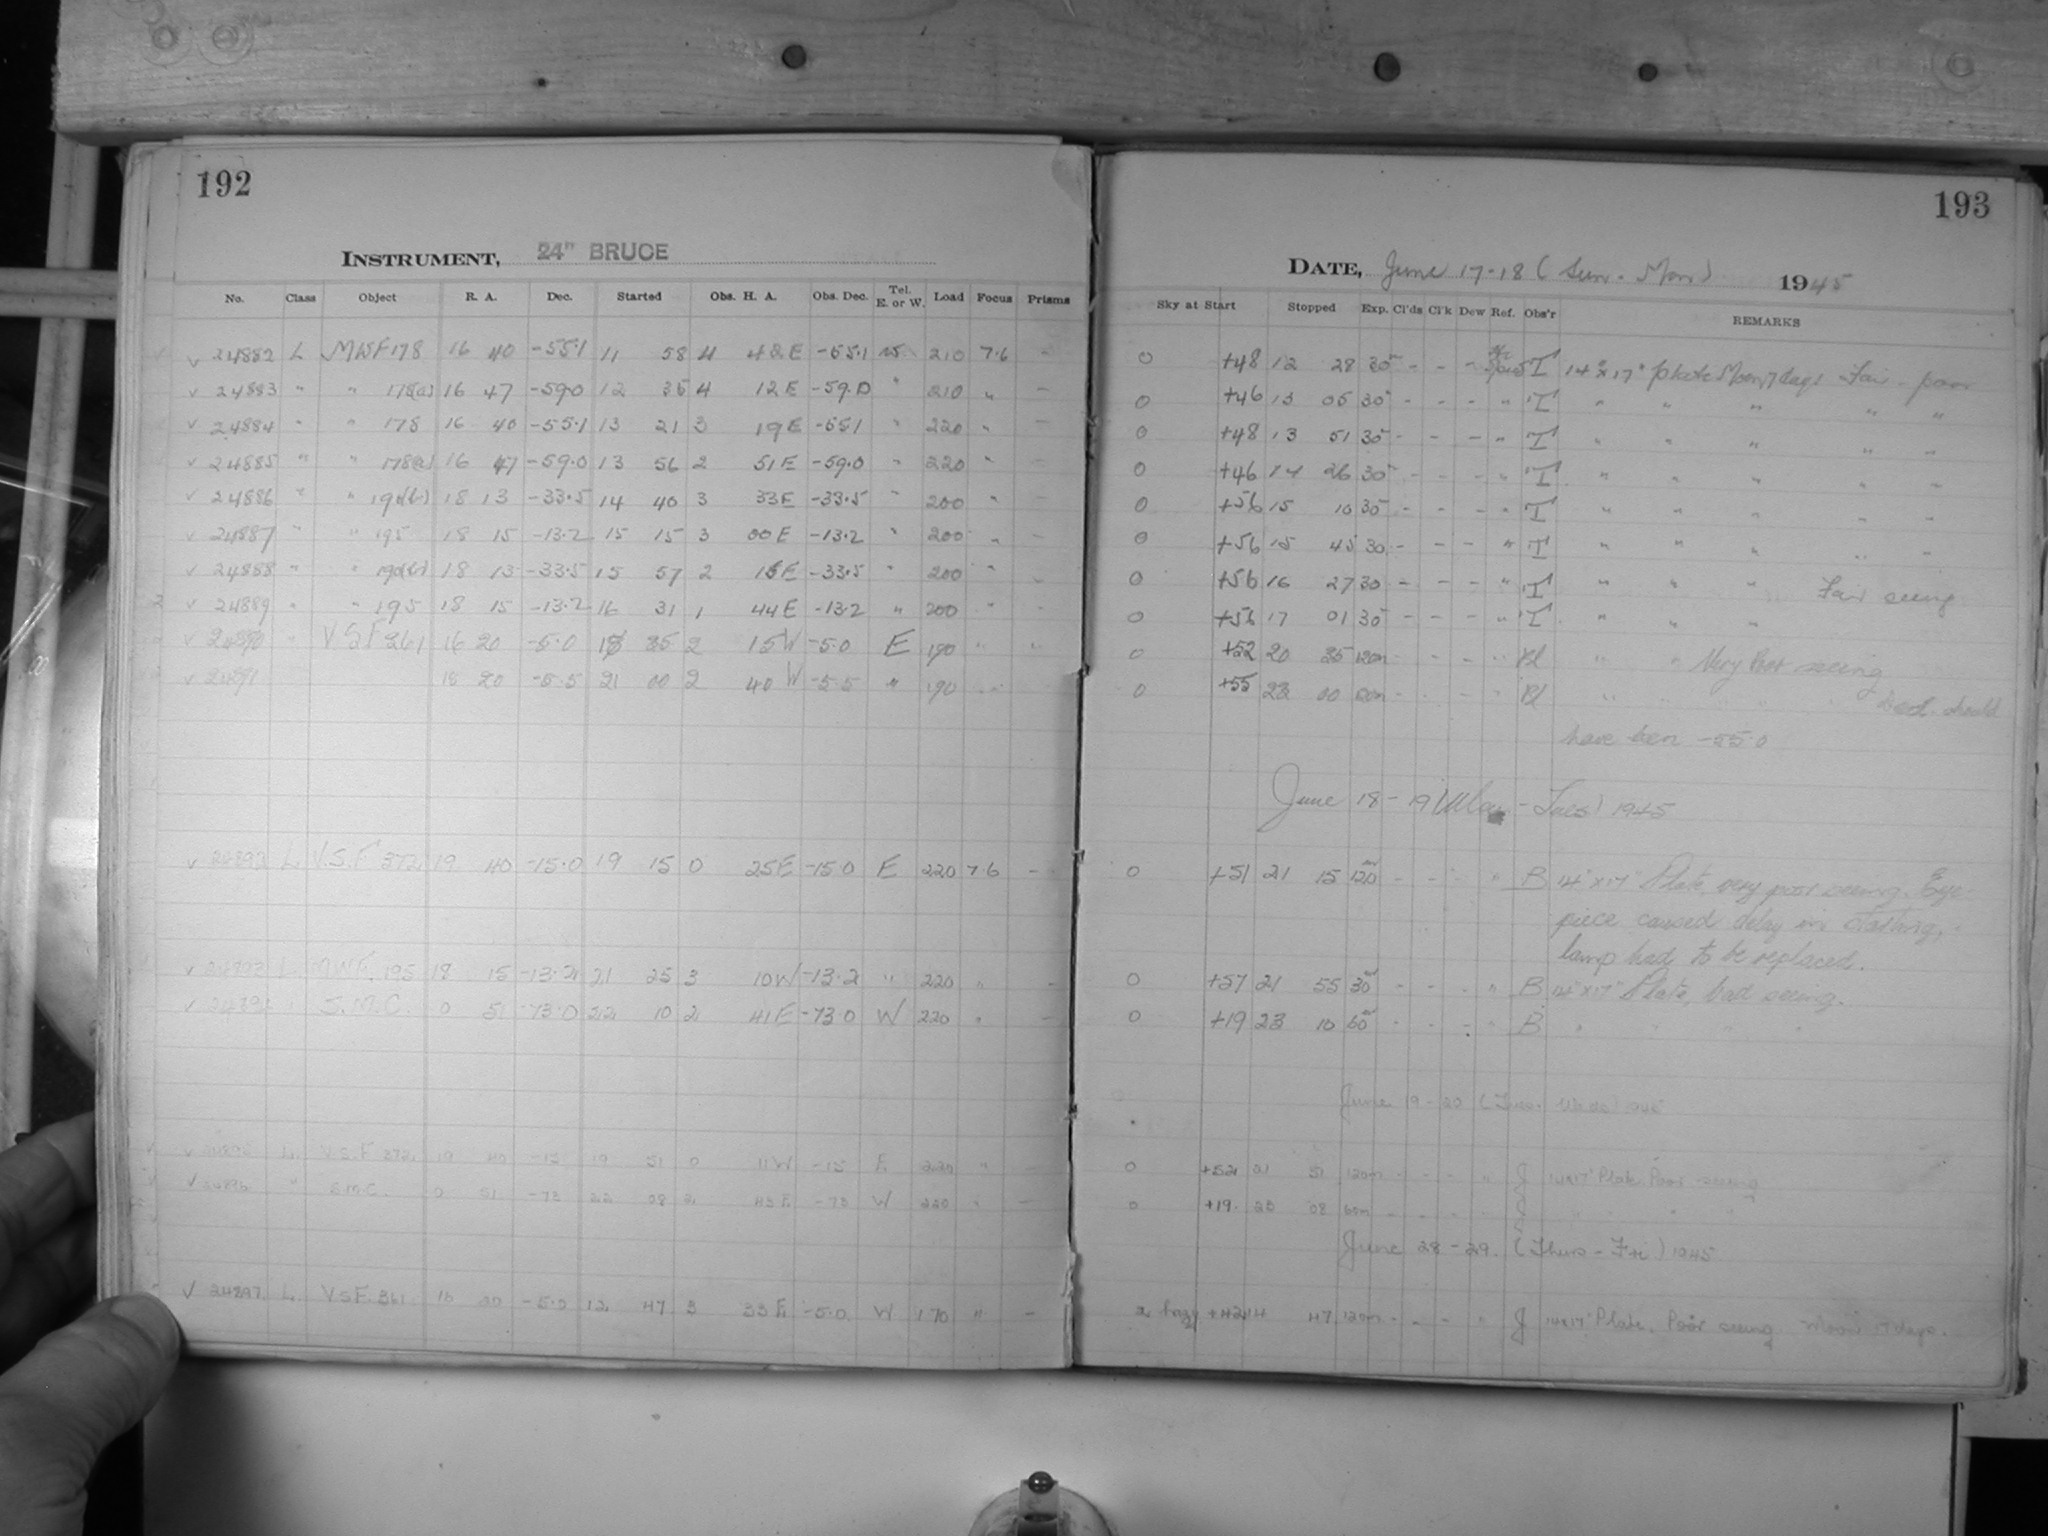 192
INSTRUMENT, 24" BRUCE
No. Class Object R. A. Dec. Started Obs. H. A. Obs. Dec. Tel. E. or W. Load Focus Prisms
√ 24882 L MWF 178 16 40 -55.1 11 58 4 42 E -55.1 W 210 7.6 -
√ 24883 " " 178(a) 16 47 -59.0 12 35 4 12 E -59.0 " 210 " -
√ 24884 " " 178 16 40 -55.1 13 21 3 19 E -55.1 " 220 " -
√ 24885 " " 178(a) 16 47 -59.0 13 56 2 51 E -59.0 " 220 " -
√ 24886 " " 18 13 -33.5 14 40 3 33 E -33.5 " 200 " -
√ 24887 " " 195 18 15 -13.2 15 15 3 00 E -13.2 " 200 " -
√ 24888 " " 18 13 -33.5 15 57 2 15 E -33.5 " 200 " -
√ 24889 " " 195 18 15 -13.2 16 31 1 44 E -13.2 " 200 " -
√ 24890 " V.S.F 361 16 20 -5.0 18 35 2 15 W -5.0 E 190 " "
√ 24891 18 20 -5.5 21 00 2 40 W -5.5 " 190
√ 24892 L V.S.F 372 19 40 -15.0 19 15 0 25 E -15.0 E 220 7.6 -
√ 24893 L MWF. 195 18 15 -13.2 21 25 3 10 W -13.2 " 220 " -
√ S.M.C. 0 51 -73.0 22 10 2 41 E -73.0 W 220 " -
√ L. V.S.F 372 19 40 -15 19 51 0 11 W -15 E 220 " -
√ 24896 " S.M.C. 0 51 -73 22 08 2 43 E -73 W 220 " -
√ 24897 L. V.S.F. 361 16 20 -5.0 12 47 3 33 E -5.0 W 170 " -
193
DATE, June 17-18 (Sun. - Mon) 1945
Sky at Start Stopped Exp. Cl'ds Cl'k Dew Ref. Obs'r REMARKS
0 +48 12 28 30m - - - T 14"x17" plate Moon 7 days Fair - poor
0 +46 13 05 30 - - - " T " " " " "
0 +48 13 51 30 - - - " T " " " " "
0 +46 14 26 30 - - - " T " " " " "
0 +56 15 10 30 - - - " T " " " " "
0 +56 15 45 30 - - - " T " " " " "
0 +56 16 27 30 - - - " T " " " Fair seeing
0 +56 17 01 30 - - - " T " " "
0 +52 20 35 120m - - - " Bl " " Very Poor seeing
0 +55 23 00 120m - - - " Bl " decl. should
have been -55.0
June 18-19 (Mon - Tues) 1945
0 +51 21 15 120m - - - " B 14"x17" Plate, very poor seeing. Eye
piece caused delay in starting,
lamp had to be replaced.
0 +57 21 55 30m - - - " B 14"x17" Plate, bad seeing.
0 +19 23 10 60m - - - " B " " " "
June 19-20 (Tues. Weds) 1945
0 +52 21 51 120m - - - " J 14x17" Plate. Poor seeing
0 +19. 23 08 60m - - - " J " " " "
June 28-29. (Thurs - Fri) 1945
hazy +42 14 47 120m - - - " J 14x17" Plate. Poor seeing. Moon 17 days.